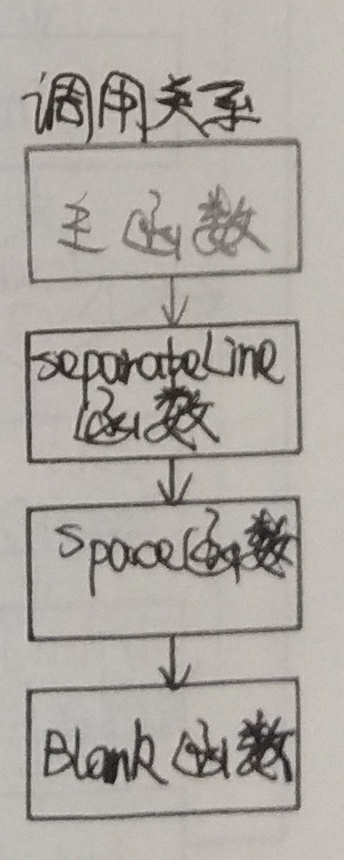 调用关系
主函数
separateLine
函数
Space函数
Blank函数